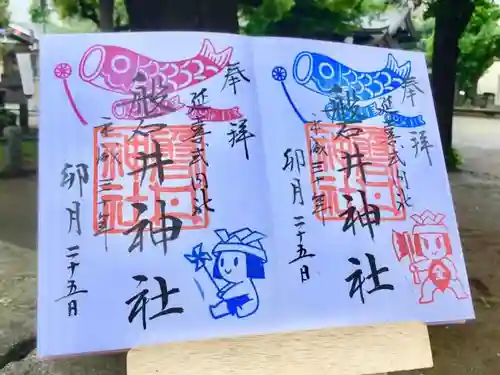 奉拝
延喜式内社
磐井神社
平成三十年
卯月二十五日
奉拝
延喜式内社
磐井神社
平成三十年
卯月二十五日